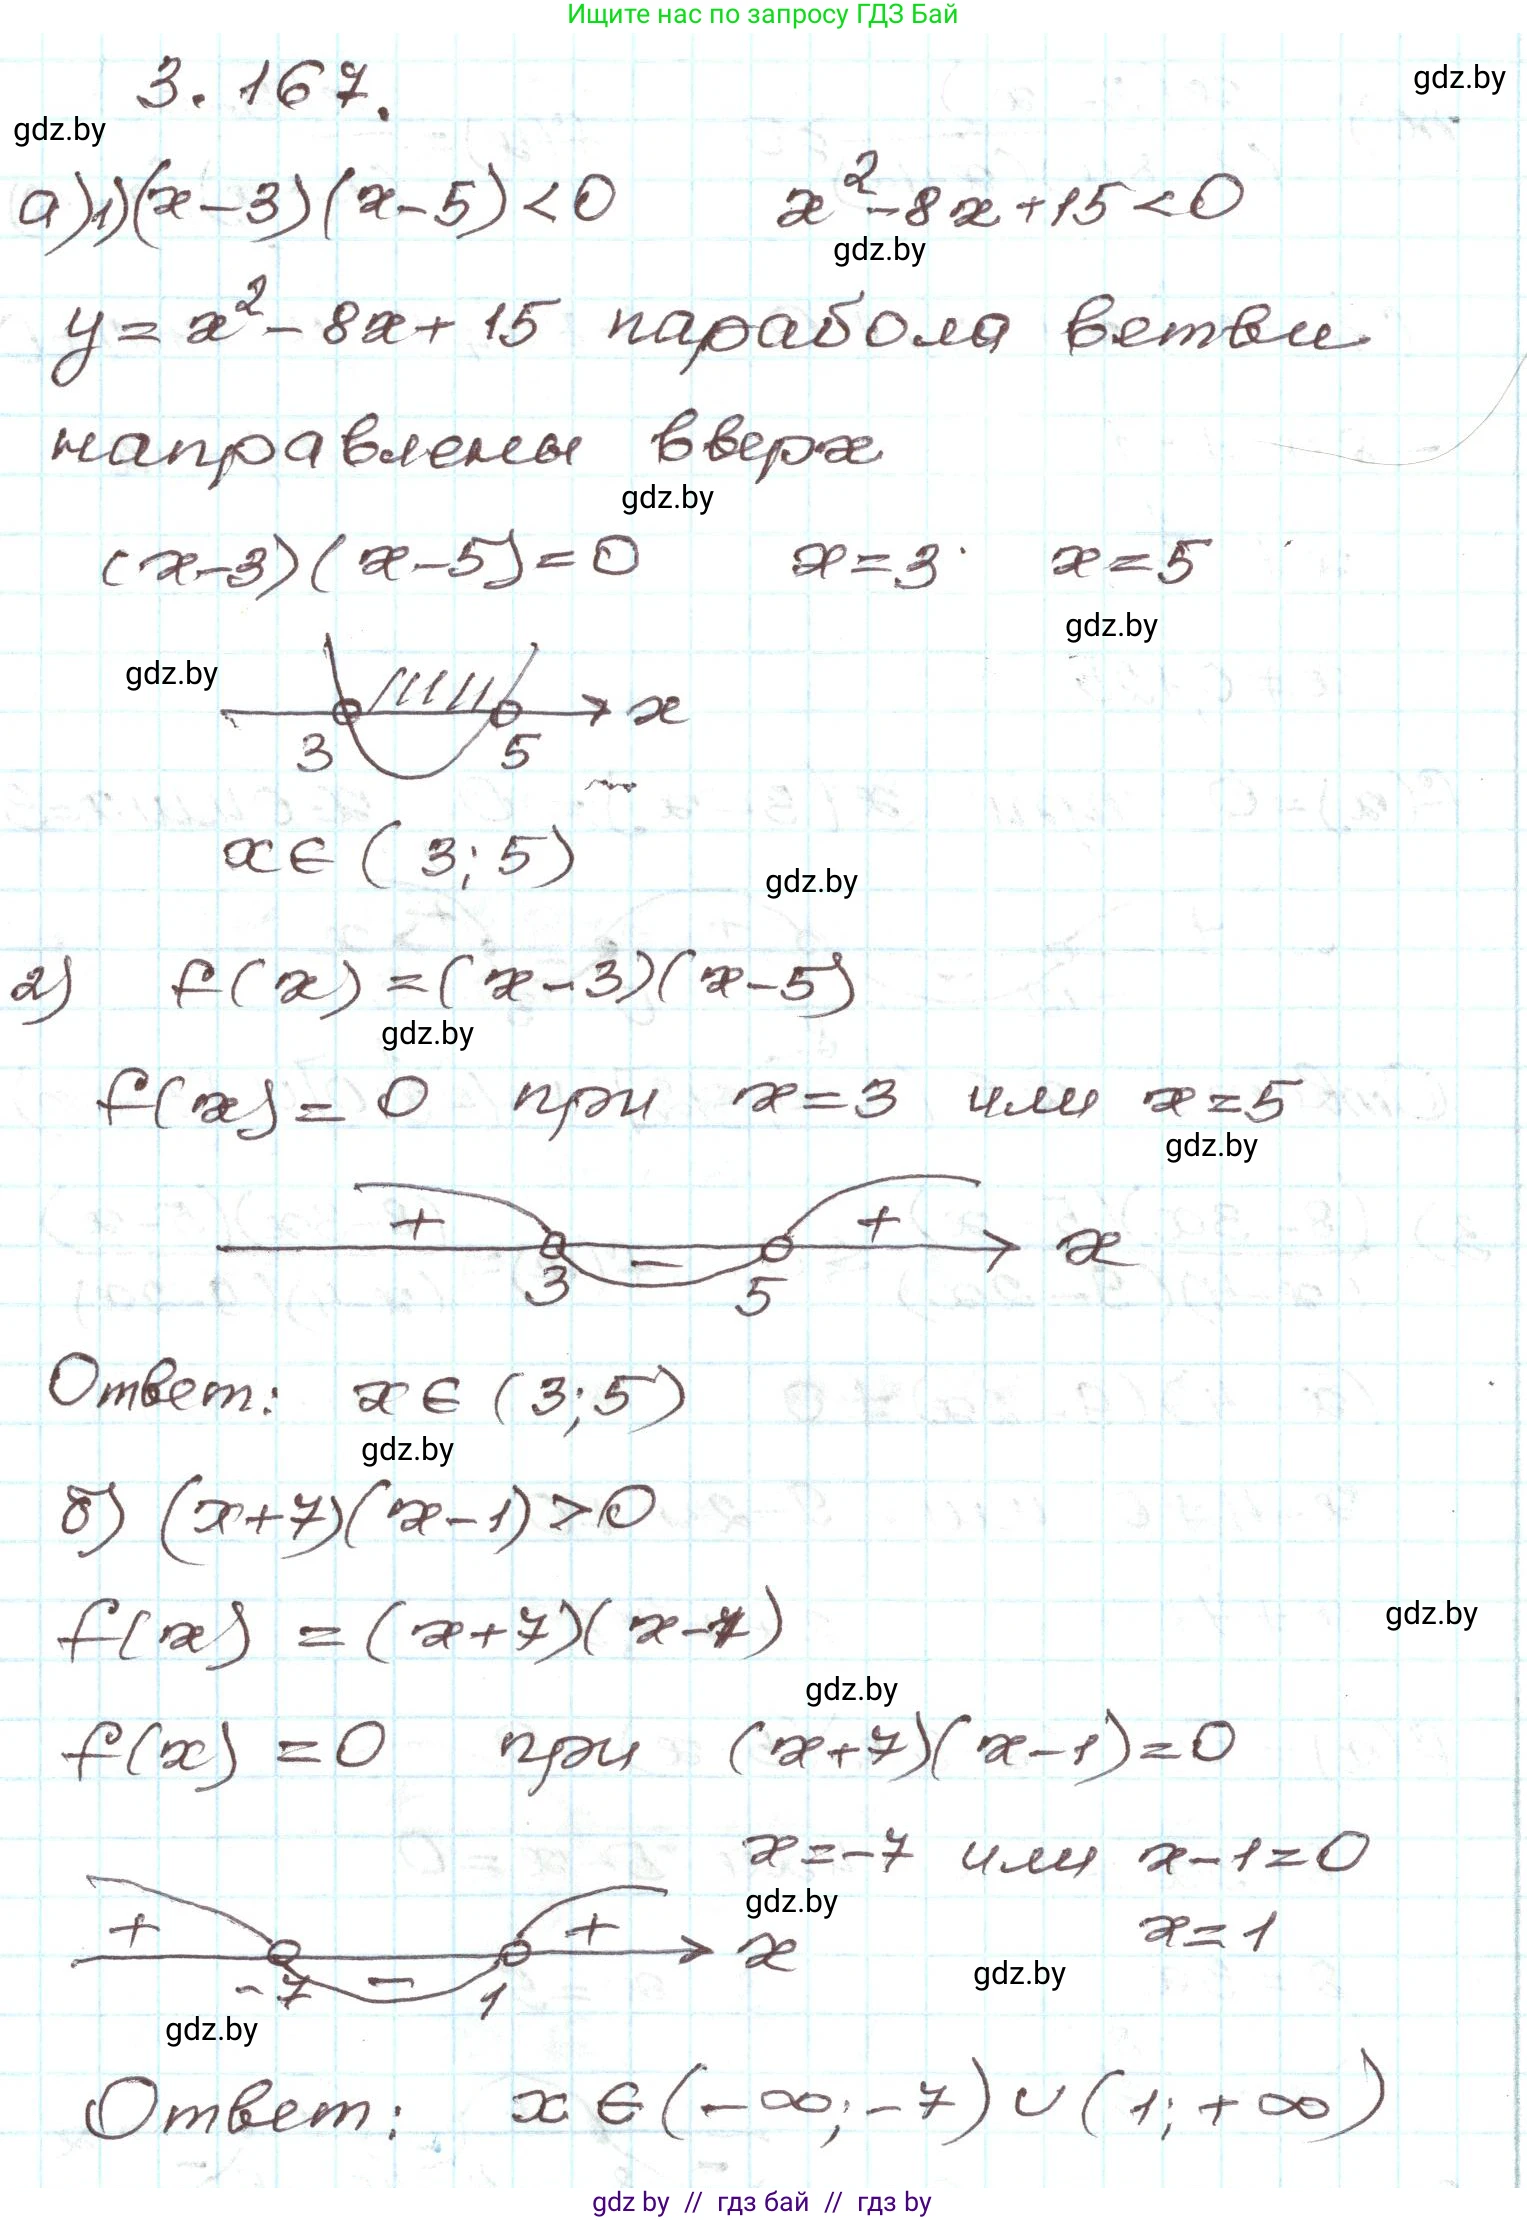 Ищите нас по запросу ГДЗ Бай
3.167.
gdz.by
gdz.by
а)1)(x-3)(x-5)<0 x²-8x+15<0
gdz.by
y=x²-8x+15 парабола ветви
направлены вверх
gdz.by
(x-3)(x-5)=0 x=3 x=5
gdz.by
gdz.by
x
3 5
x∈(3;5)
gdz.by
2) f(x)=(x-3)(x-5)
gdz.by
f(x)=0 при x=3 или x=5
gdz.by
+ - + x
3 5
Ответ: x∈(3;5)
gdz.by
б) (x+7)(x-1)>0
f(x)=(x+7)(x-1)
gdz.by
gdz.by
f(x)=0 при (x+7)(x-1)=0
x=-7 или x-1=0
gdz.by
x=1
+ - + x
-7 1
gdz.by
gdz.by
Ответ: x∈(-∞;-7)∪(1;+∞)
gdz by // гдз бай // гдз by